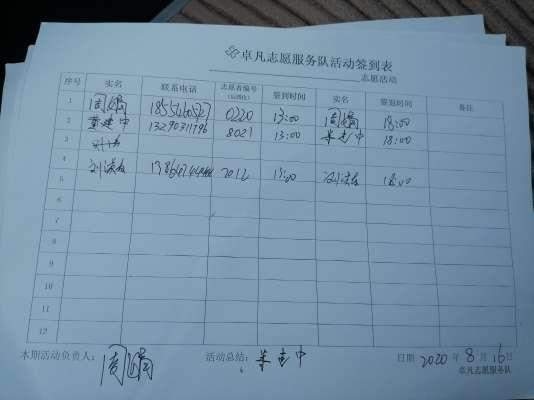 卓凡志愿服务队活动签到表
志愿活动
序号 实名 联系电话 志愿者编号 签到时间 实名 签退时间 备注
(后四位)
1 周娟 0220 13:00 周娟 18:00
2 建中 13290311796 8021 13:00 建中 18:00
3
4
5 2012 13:00 18:00
6
7
8
9
10
11
12
本期活动负责人: 周娟 活动总结: 建中 日期 2020 年 8 月 16 日
卓凡志愿服务队